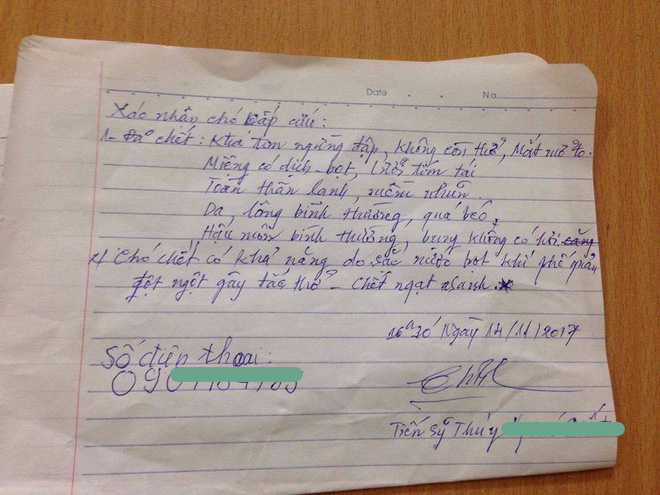 Date No
Xác nhận chó cấp cứu:
1- Đã chết: Khá tim ngừng đập, không còn thở, Mắt mở to.
Miệng có dịch bọt, lưỡi tím tái
Toàn thân lạnh, mềm nhũn.
Da, lông bình thường, quá béo,
Hậu môn bình thường, bụng không có hơi căng
Chó chết có khả năng do sặc nước bọt khí phế quản
đột ngột gây tắc thở - chết ngạt nhanh.
16h30 Ngày 14/11/2017
Số điện thoại:
090
Tiến sỹ Thú y